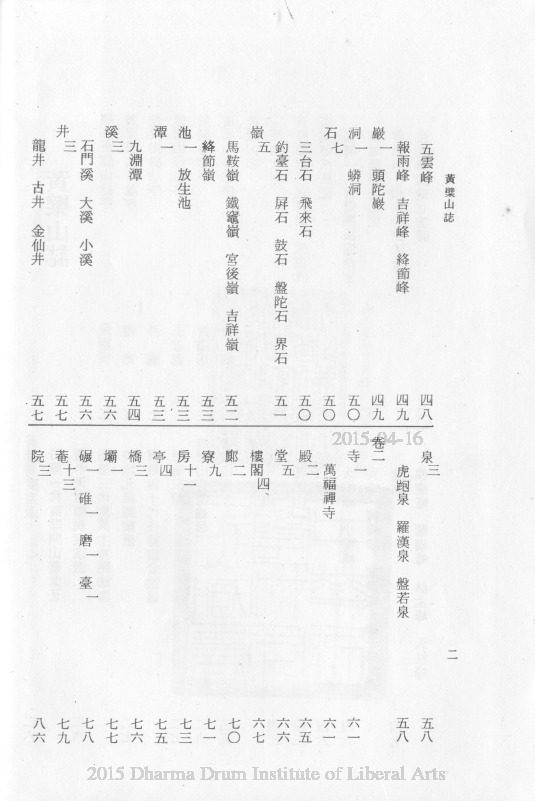 黃檗山誌
二
五雲峰 四八
報雨峰 吉祥峰 絳節峰 四九
巖一 頭陀巖 四九
洞一 蟒洞 五〇
石七 五〇
三台石 飛來石 五〇
釣臺石 屏石 鼓石 盤陀石 界石 五一
嶺五
馬鞍嶺 鐵竈嶺 宮後嶺 吉祥嶺 五二
絳節嶺 五三
池一 放生池 五三
潭一 五三
九淵潭 五四
溪三 五六
石門溪 大溪 小溪 五六
井三 五七
龍井 古井 金仙井 五七
泉三 五八
虎跑泉 羅漢泉 盤若泉 五八
卷二
寺一 六一
萬福禪寺 六一
殿二 六五
堂五 六六
樓閣四、 六七
廊二 七〇
寮九 七一
房十一 七三
亭四 七五
橋三 七六
壩一 七七
碾一 碓一 磨一 臺一 七八
菴十三 七九
院三 八六
2015-04-16
2015 Dharma Drum Institute of Liberal Arts